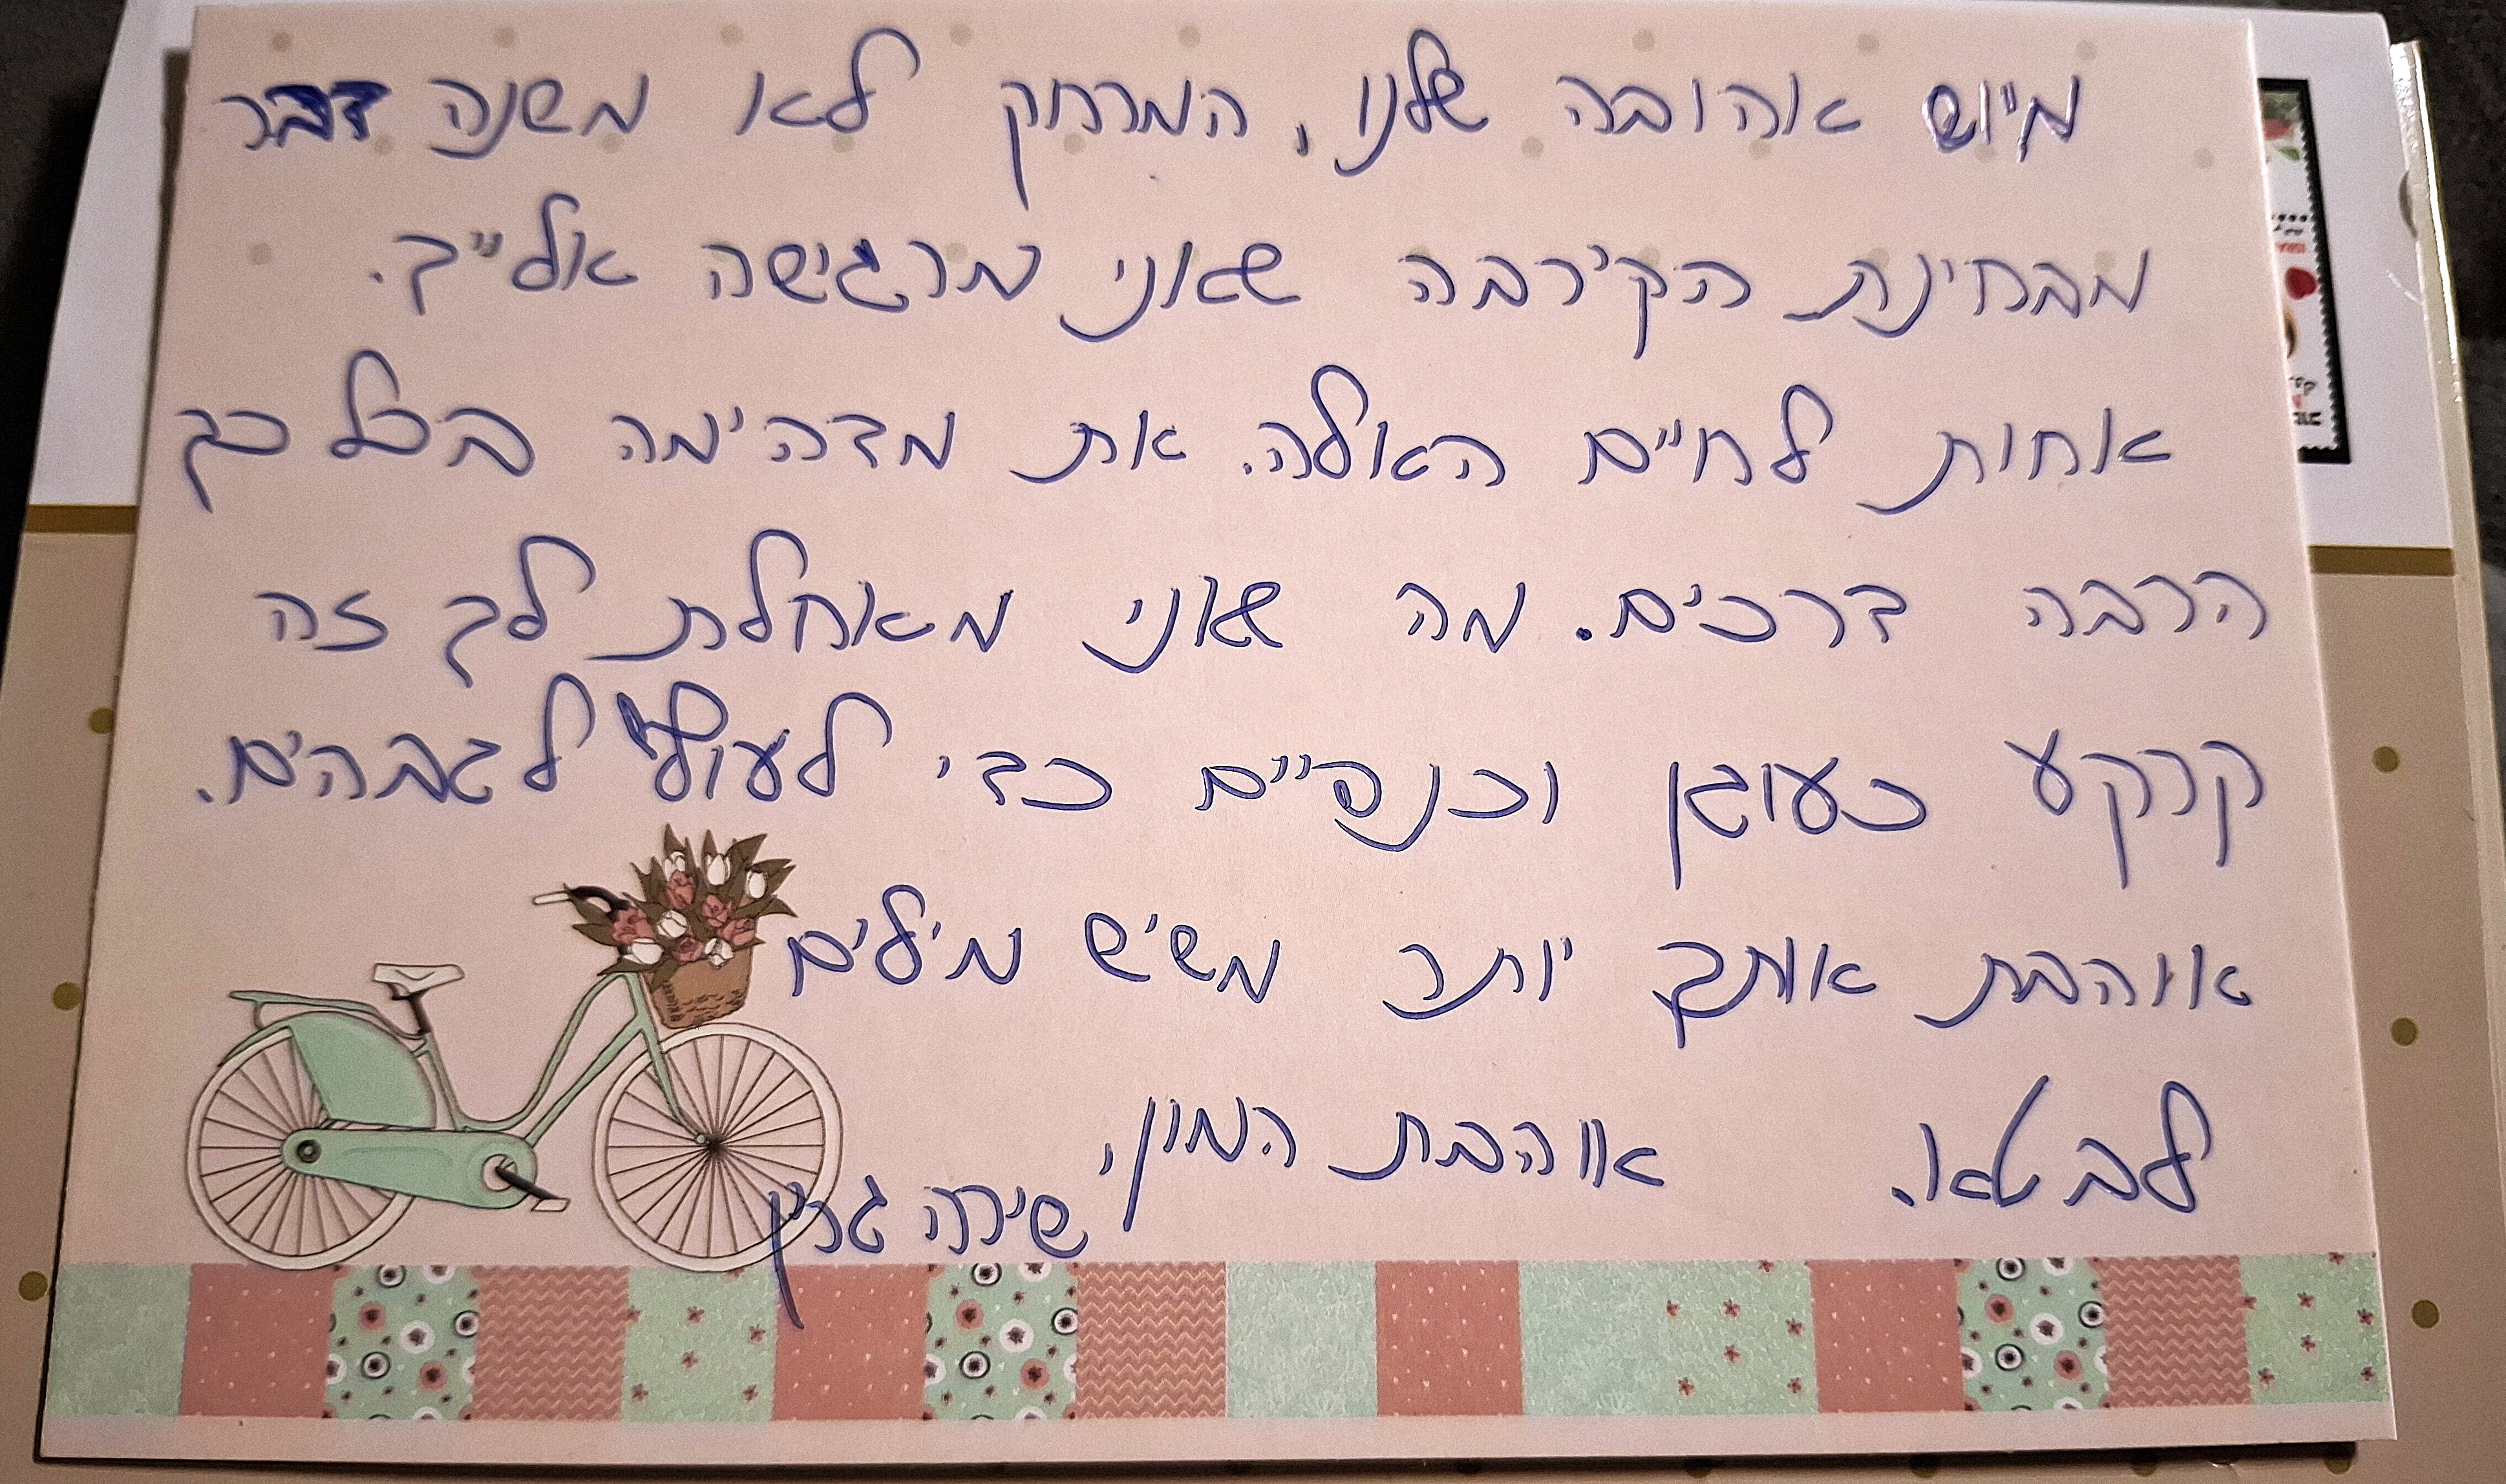 מיוש אהובה שלנו, המרחק לא משנה דבר
מבחינת הקירבה שאני מרגישה אלייך.
אחות לחיים האלה. את מדהימה בכל כך
הרבה דרכים. מה שאני מאחלת לך זה
קרקע כעוגן וכנפיים כדי לעוף לגבהים.
אוהבת אותך יותר משיש מילים
לבטא. אוהבת המון,
שירה גרין